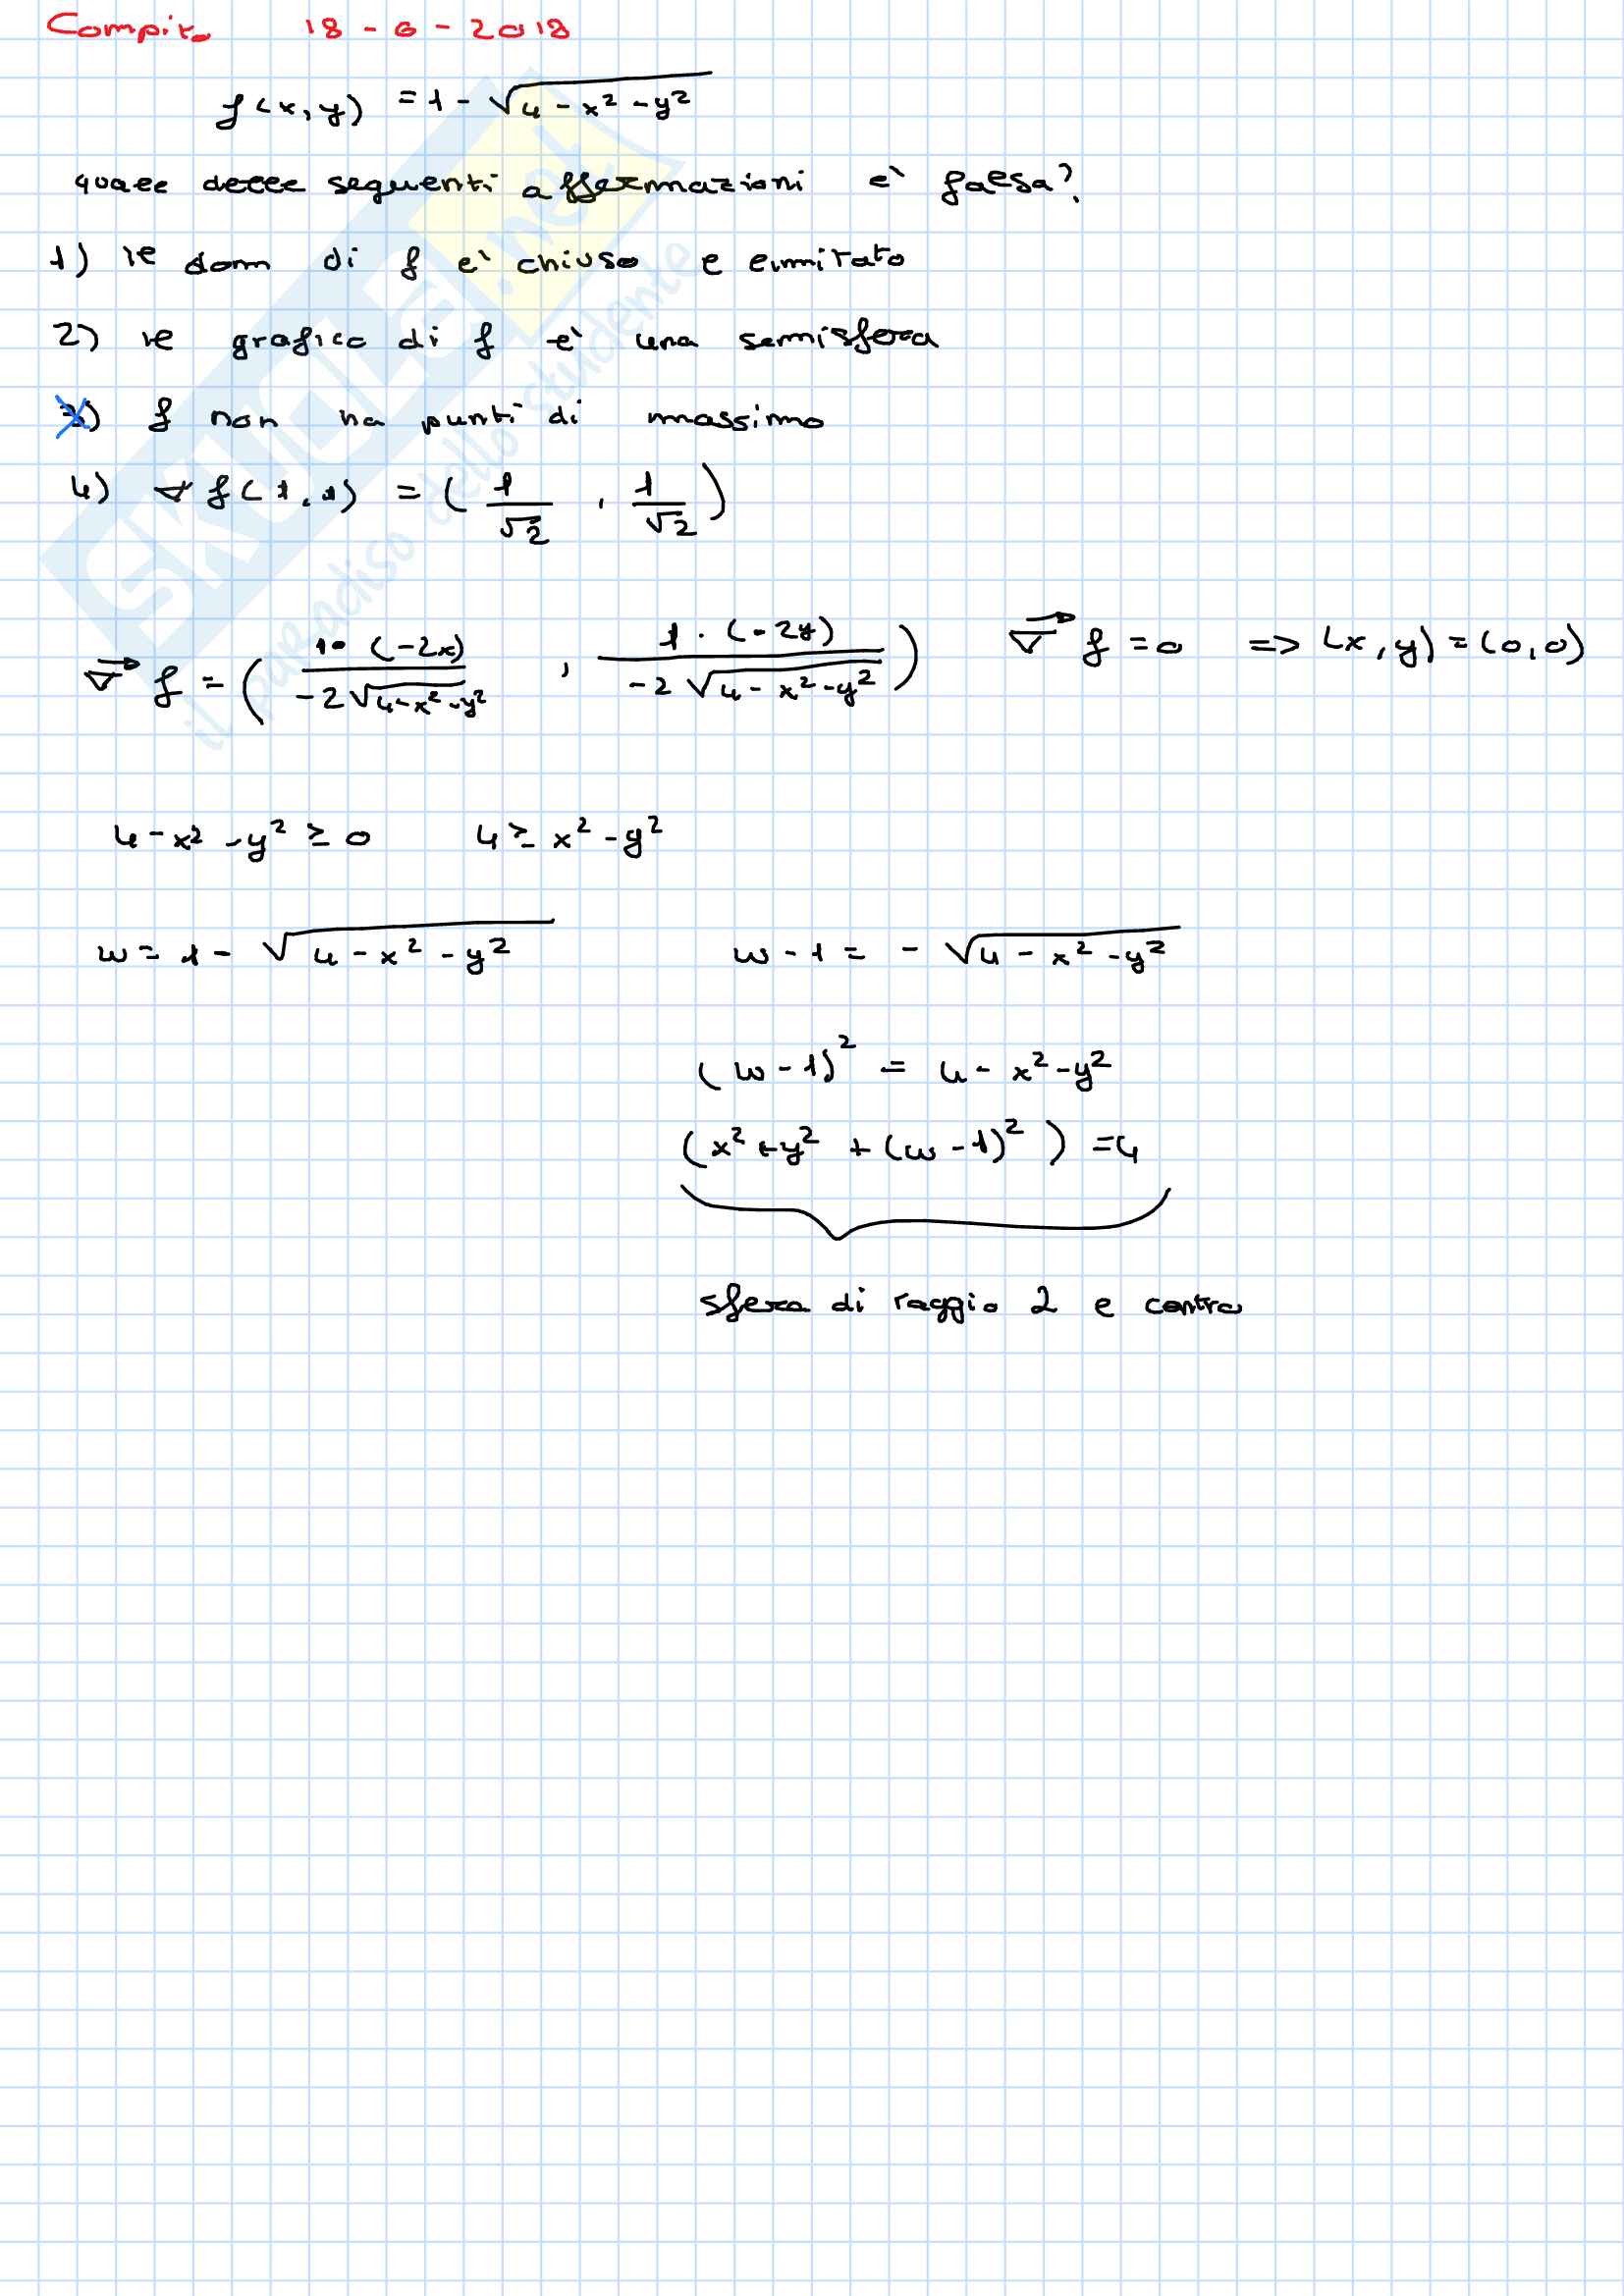 Compito 18 - 6 - 2018
f(x,y) = 1 - √(4 - x² - y²)
quale delle seguenti affermazioni e' falsa?
1) il dom di f e' chiuso e limitato
2) il grafico di f e' una semisfera
3) f non ha punti di massimo
4) ∇f(1,1) = (1/√2, 1/√2)
∇f = (1·(-2x)/(-2√(4-x²-y²)), 1·(-2y)/(-2√(4-x²-y²))) ∇f = 0 => (x,y) = (0,0)
4 - x² - y² ≥ 0 4 ≥ x² - y²
w = 1 - √(4 - x² - y²) w - 1 = - √(4 - x² - y²)
(w - 1)² = 4 - x² - y²
(x² + y² + (w - 1)²) = 4
sfera di raggio 2 e centro
SKUOLA.net
il paradiso dello studente